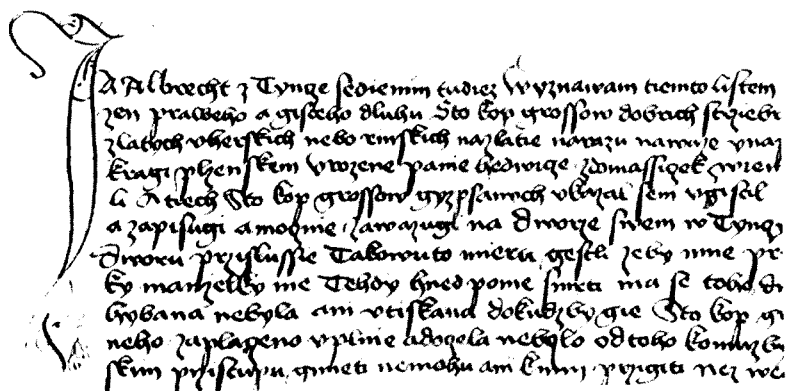 JA Albrecht z Tynze sediemim tudiez Wyznawam tiemto listem
zen praweho a gisteho dluhu Sto kop grossow dobrich strziebr
zlatych vherskich nebo rinskich nazlatie nawazu
kragi plzenskem Vrozene panie hedwige zdomassiczek
li A tiech Sto kop grossow gyzpsanych vkazal sem vgistil
a zapisugi a moczne zawazugi na Dworze swem w Tynze
Dworu przislussie Takowuto mieru gestli zeby mne
ky manzelky me Tehdy hned pome smrti ma se toho
hybana nebyla ani vtiskana dokudzby gie Sto kop
neho zaplaczeno vplnie adoczela nebylo od toho
skim przistupu gmieti nemohu ani kniem przigiti nez